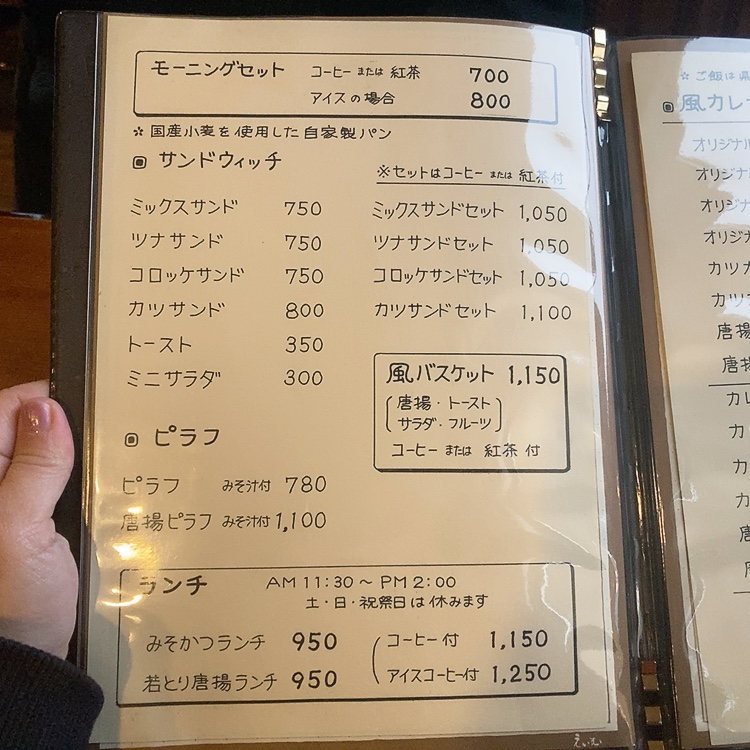 モーニングセット コーヒー または 紅茶 700
アイスの場合 800
☆ 国産小麦を使用した自家製パン
サンドウィッチ
※セットはコーヒー または 紅茶付
ミックスサンド 750
ツナサンド 750
コロッケサンド 750
カツサンド 800
トースト 350
ミニサラダ 300
ミックスサンドセット 1,050
ツナサンドセット 1,050
コロッケサンドセット 1,050
カツサンドセット 1,100
風バスケット 1,150
唐揚・トースト
サラダ・フルーツ
コーヒー または 紅茶 付
ピラフ
ピラフ みそ汁付 780
唐揚ピラフ みそ汁付 1,100
ランチ AM 11:30 〜 PM 2:00
土・日・祝祭日は休みます
みそかつランチ 950
若とり唐揚ランチ 950
コーヒー付 1,150
アイスコーヒー付 1,250
☆ ご飯は
風カレ
オリジナル
オリジナ
オリジ
オリジ
カツカ
カツ
唐揚
唐揚
カレ
カ
カ
カ
唐